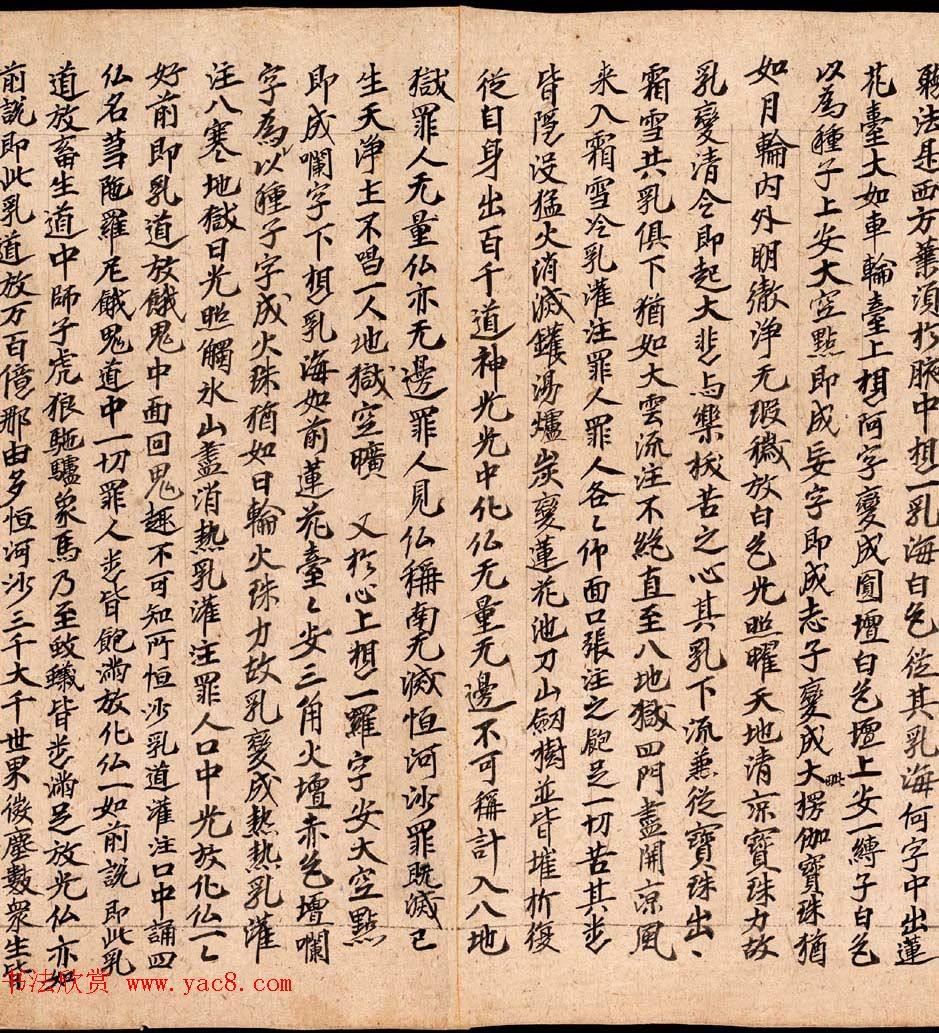 法是西方葉須於腋中想一乳海白色從其乳海何字中出蓮
花臺大如車輪臺上想阿字變成圓壇白色壇上安一縛子白色
以為種子上安大空點即成鋄字即成志子變成大楞伽寶珠猶
如月輪內外明徹淨无瑕穢放白色光照曜天地清涼寶珠力故
乳變清令即起大悲与樂拔苦之心其乳下流兼從寶珠出〻
霜雪共乳俱下猶如大雲流注不絕直至八地獄四門盡開涼風
来入霜雪冷乳灌注罪人罪人各〻仰面口張注之飽足一切苦其悉
皆隱没猛火消滅鑊湯爐炭變蓮花池刀山劒樹並皆摧折復
從自身出百千道神光光中化仏无量无邊不可稱計入八地
獄罪人无量仏亦无邊罪人見仏稱南无滅恒河沙罪既滅已
生天淨土不唱一人地獄空曠 又於心上想一羅字安大空點
即成囒字下想乳海如前蓮花臺〻安三角火壇赤色壇囒
字為以種子字成火珠猶如日輪火珠力故乳變成熱熱乳灌
注八寒地獄日光照觸氷山盡消熱乳灌注罪人口中光放化仏一〻
好前即乳道放餓鬼中面回鬼趣不可知所恒沙乳道灌注口中誦四
仏名号陁羅尼餓鬼道中一切罪人悉皆飽滿放化仏一如前說 即此乳
道放畜生道中師子虎狼駞驢象馬乃至蚊蟻皆悉滿足放光仏亦如
前說即此乳道放万百億那由多恒河沙三千大千世界微塵數衆生皆
书法欣赏 www.yac8.com